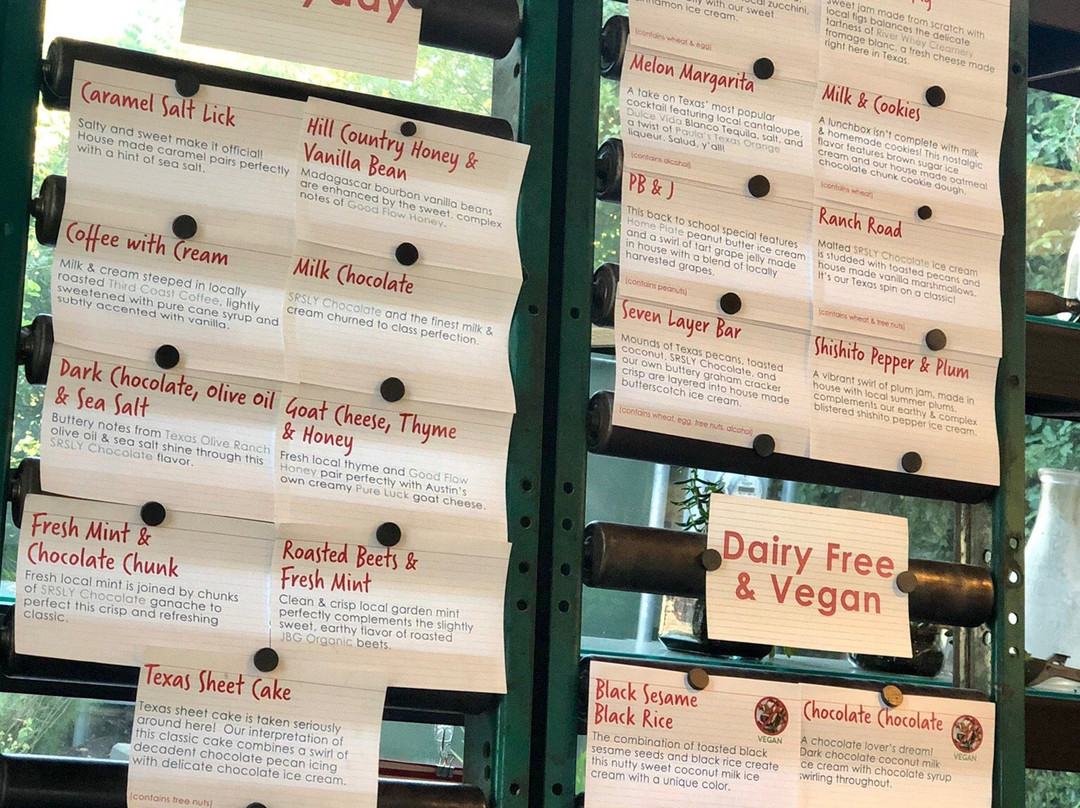 Caramel Salt Lick
Salty and sweet make it official!
House made caramel pairs perfectly
with a hint of sea salt.
Hill Country Honey &
Vanilla Bean
Madagascar bourbon vanilla beans
are enhanced by the sweet, complex
notes of Good Flow Honey.
Coffee with Cream
Milk & cream steeped in locally
roasted Third Coast Coffee, lightly
sweetened with pure cane syrup and
subtly accented with vanilla.
Milk Chocolate
SRSLY Chocolate and the finest milk &
cream churned to class perfection.
Dark Chocolate, Olive Oil
& Sea Salt
Buttery notes from Texas Olive Ranch
olive oil & sea salt shine through this
SRSLY Chocolate flavor.
Goat Cheese, Thyme
& Honey
Fresh local thyme and Good Flow
Honey pair perfectly with Austin's
own creamy Pure Luck goat cheese.
Fresh Mint &
Chocolate Chunk
Fresh local mint is joined by chunks
of SRSLY Chocolate ganache to
perfect this crisp and refreshing
classic.
Roasted Beets &
Fresh Mint
Clean & crisp local garden mint
perfectly complements the slightly
sweet, earthy flavor of roasted
JBG Organic beets.
Texas Sheet Cake
Texas sheet cake is taken seriously
around here! Our interpretation of
this classic cake combines a swirl of
decadent chocolate pecan icing
with delicate chocolate ice cream.
(contains tree nuts)
local zucchini,
with our sweet
cinnamon ice cream.
(contains wheat & egg)
sweet jam made from scratch with
local figs balances the delicate
tartness of River Whey Creamery
fromage blanc, a fresh cheese made
right here in Texas.
Melon Margarita
A take on Texas' most popular
cocktail featuring local cantaloupe,
Dulce Vida Blanco Tequila, salt, and
a twist of Paula's Texas Orange
liqueur. Salud, y'all!
(contains alcohol)
Milk & Cookies
A lunchbox isn't complete with milk
& homemade cookies! This nostalgic
flavor features brown sugar ice
cream and our house made oatmeal
chocolate chunk cookie dough.
(contains wheat)
PB & J
This back to school special features
Home Plate peanut butter ice cream
and a swirl of tart grape jelly made
in house with a blend of locally
harvested grapes.
(contains peanuts)
Ranch Road
Malted SRSLY Chocolate ice cream
is studded with toasted pecans and
house made vanilla marshmallows.
It's our Texas spin on a classic!
(contains wheat & tree nuts)
Seven Layer Bar
Mounds of Texas pecans, toasted
coconut, SRSLY Chocolate, and
our own buttery graham cracker
crisp are layered into house made
butterscotch ice cream.
(contains wheat, egg, tree nuts, alcohol)
Shishito Pepper & Plum
A vibrant swirl of plum jam, made in
house with local summer plums,
complements our earthy & complex
blistered shishito pepper ice cream.
Dairy Free
& Vegan
Black Sesame
Black Rice
VEGAN
The combination of toasted black
sesame seeds and black rice create
this nutty sweet coconut milk ice
cream with a unique color.
Chocolate Chocolate
VEGAN
A chocolate lover's dream!
Dark chocolate coconut milk
ice cream with chocolate syrup
swirling throughout.